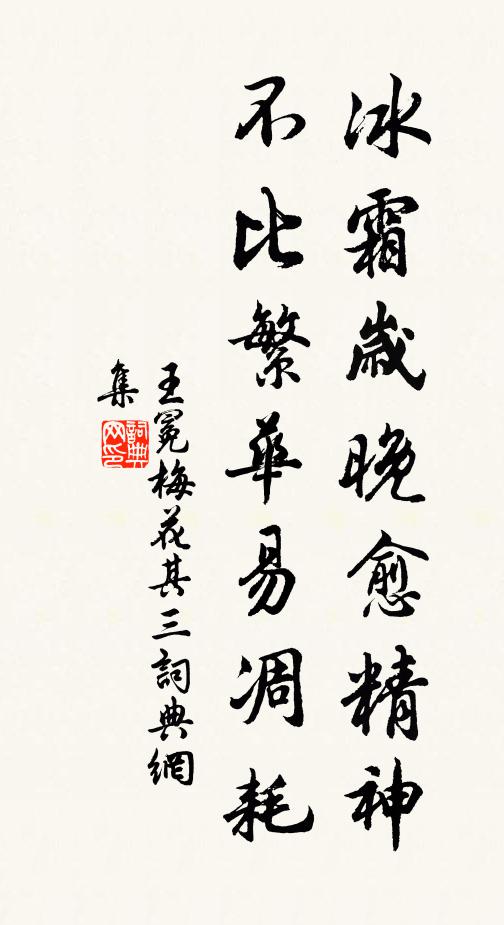 冰霜歲晚愈精神
不比繁華易凋耗
王冕梅花其三詞典網
集
詞典
网印